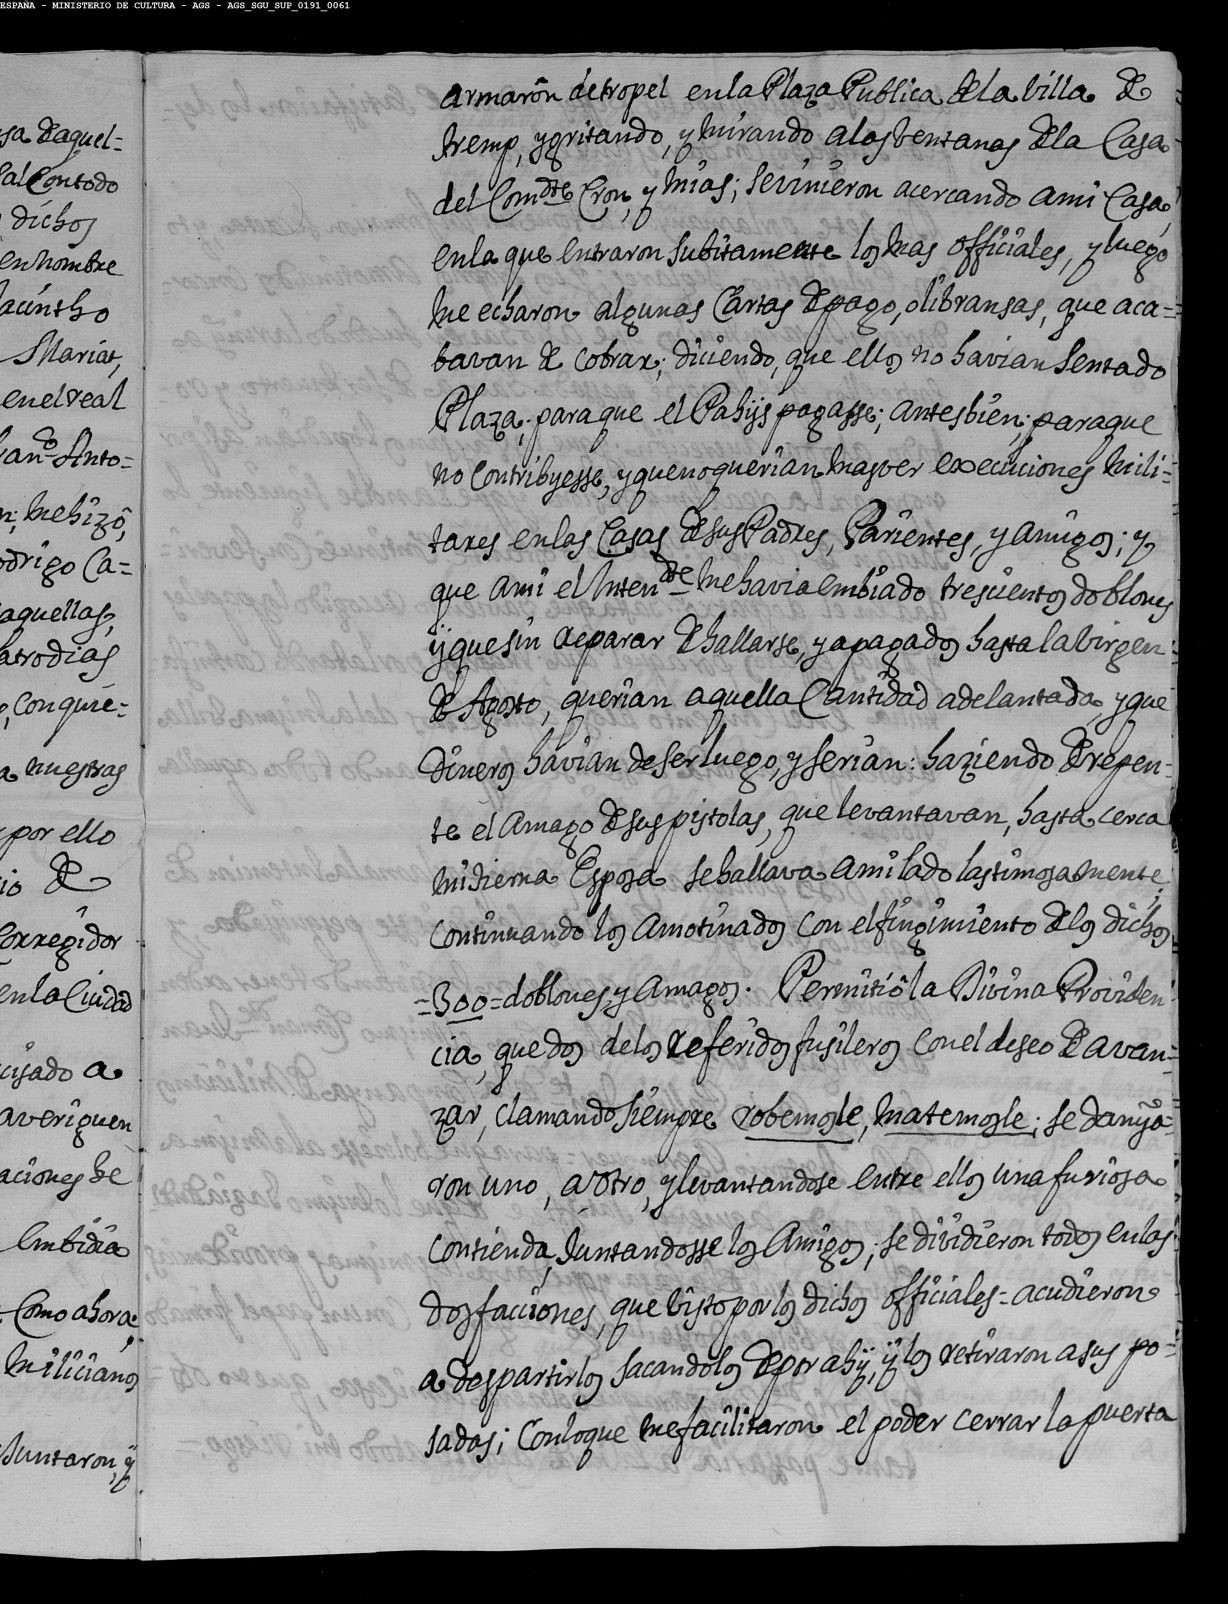 ESPAÑA - MINISTERIO DE CULTURA - AGS - AGS_SGU_SUP_0191_0061
sa de aquel=
al Contodo
dichos
en nombre
acintho
Mariat,
en el real
ran.co Anto=
n; me hizò,
odrigo Ca=
aquellas,
atro dias
Con quie=
a nuestras
por ello
io de
Corregidor
en la Ciudad
cusado a
averiguen
aciones he
embidia
Como ahora
Milicianos
Juntaron, y
armarón de tropel en la Plaza Publica de la Villa de
tremp, y gritando, y mirando a las ventanas de la Casa
del Com.dte Cron, y mias; se vinieron acercando a mi Casa,
en la que entraron subitamente los mas officiales, y luego
me echaron algunas Cartas de pago, o libransas, que aca=
bavan de cobrar; diciendo, que ellos no havian sentado
Plaza, para que el Pahijs pagasse; antes bien, para que
no contribyesse, y que no querian mas ver execuciones mili=
tares en las Casas de sus Padres, Parientes, y amigos; y
que a mi el Inten.dte me havia embiado trescientos doblones
ÿ que sin reparar de hallarse, ya pagados hasta la Virgen
de Agosto, querian aquella Cantidad adelantada, y que
Dineros havian de ser luego, y serian: haziendo de repen=
te el amago de sus pistolas, que levantavan, hasta cerca
mi tierna Esposa se hallava a mi lado lastimosamente;
continuando los amotinados con el fingimiento de los dichos
=300= doblones, y amagos. Permitió la Divina Providen
cia, que dos de los referidos fusileros con el deseo de avan=
zar, clamando siempre robemosle, matemosle; se danyã=
ron uno, a otro, y levantandose entre ellos una furiosa
contienda, Juntandosse los Amigos; se dividieron todos en las
dos facciones, que visto por los dichos officiales = acudieron
a despartirlos sacandolos de por ahÿ, ÿ los retiraron a sus po=
sadas; Con lo que me facilitaron el poder cerrar la puerta